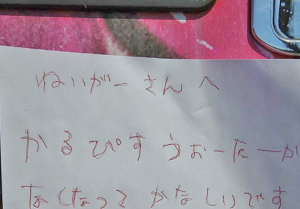 ねいがーさんへ
かるぴすうぉーたーが
なくなってかなしいです